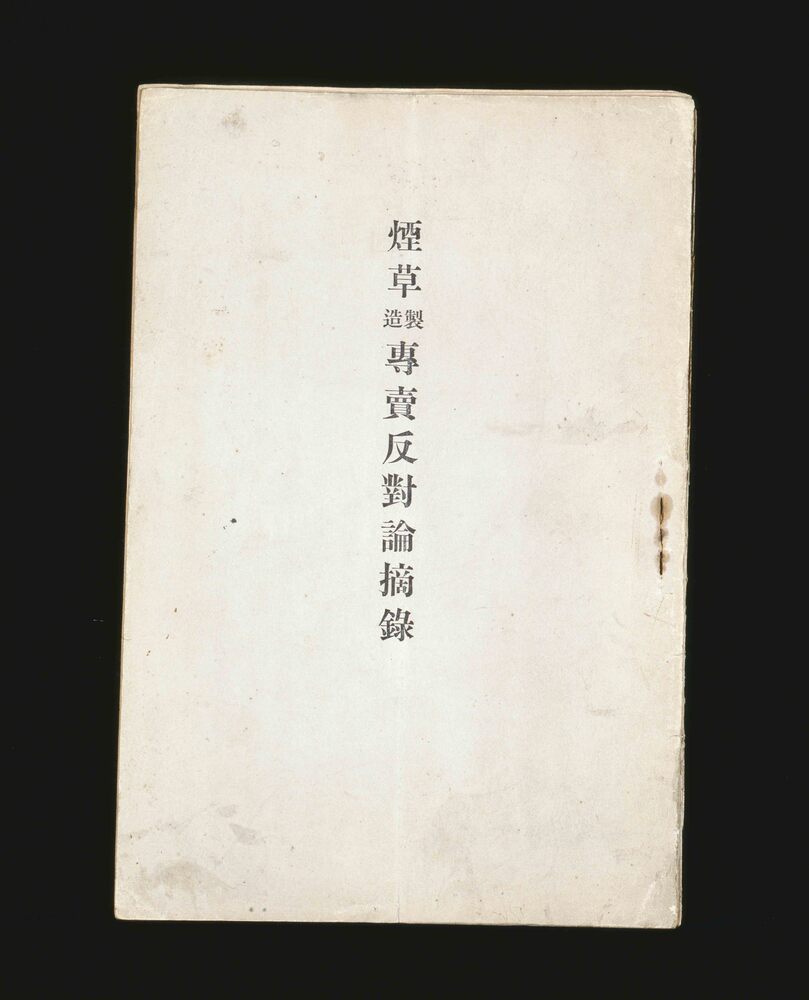 煙草製造專賣反對論摘錄